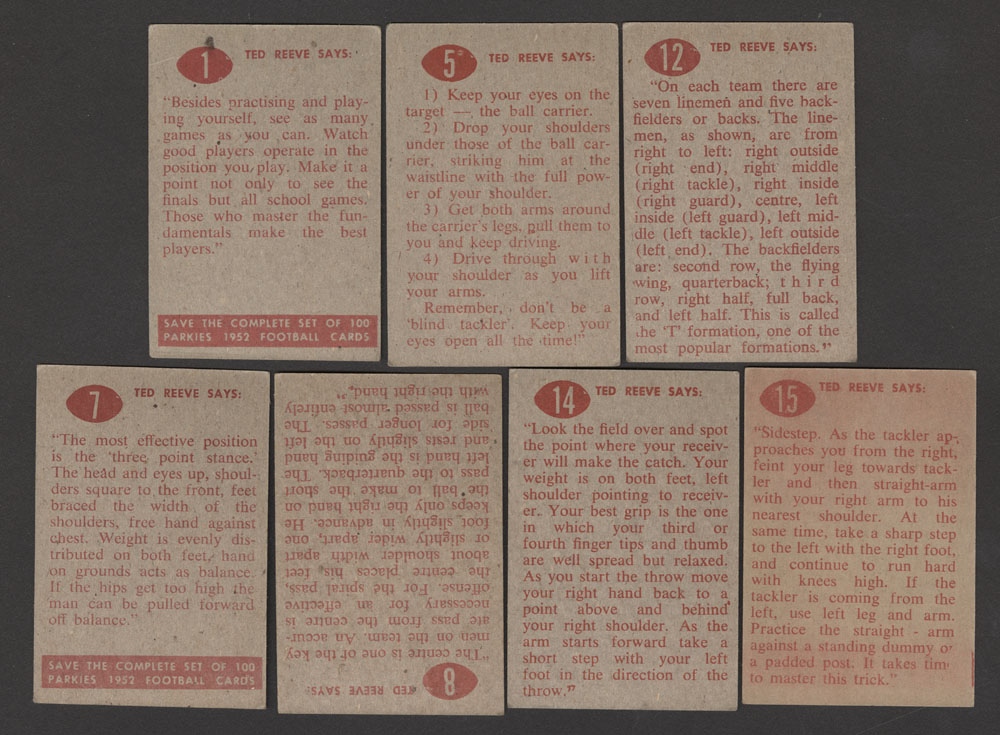 1
TED REEVE SAYS:
"Besides practising and play-
ing yourself, see as many
games as you can. Watch
good players operate in the
position you play. Make it a
point not only to see the
finals but all school games.
Those who master the fun-
damentals make the best
players."
SAVE THE COMPLETE SET OF 100
PARKIES 1952 FOOTBALL CARDS
5
TED REEVE SAYS:
1) Keep your eyes on the
target — the ball carrier.
2) Drop your shoulders
under those of the ball car-
rier, striking him at the
waistline with the full pow-
er of your shoulder.
3) Get both arms around
the carrier's legs, pull them to
you and keep driving.
4) Drive through with
your shoulder as you lift
your arms.
Remember, don't be a
'blind tackler'. Keep your
eyes open all the time!"
12
TED REEVE SAYS:
"On each team there are
seven linemen and five back-
fielders or backs. The line-
men, as shown, are from
right to left: right outside
(right end), right middle
(right tackle), right inside
(right guard), centre, left
inside (left guard), left mid-
dle (left tackle), left outside
(left end). The backfielders
are: second row, the flying
wing, quarterback; third
row, right half, full back,
and left half. This is called
the 'T' formation, one of the
most popular formations."
7
TED REEVE SAYS:
"The most effective position
is the 'three point stance.'
The head and eyes up, shoul-
ders square to the front, feet
braced the width of the
shoulders, free hand against
chest. Weight is evenly dis-
tributed on both feet, hand
on grounds acts as balance.
If the hips get too high the
man can be pulled forward
off balance."
SAVE THE COMPLETE SET OF 100
PARKIES 1952 FOOTBALL CARDS
8
TED REEVE SAYS:
"The centre is one of the key
men on the team. An accur-
ate pass from the centre is
necessary for an effective
offense. For the spiral pass,
the centre places his feet
about shoulder width apart
or slightly wider apart, one
foot slightly in advance. He
keeps only the right hand on
the ball to make the short
pass to the quarterback. The
left hand is the guiding hand
and rests slightly on the left
side for longer passes. The
ball is passed almost entirely
with the right hand."
14
TED REEVE SAYS:
"Look the field over and spot
the point where your receiv-
er will make the catch. Your
weight is on both feet, left
shoulder pointing to receiv-
er. Your best grip is the one
in which your third or
fourth finger tips and thumb
are well spread but relaxed.
As you start the throw move
your right hand back to a
point above and behind
your right shoulder. As the
arm starts forward take a
short step with your left
foot in the direction of the
throw."
15
TED REEVE SAYS:
"Sidestep. As the tackler ap-
proaches you from the right,
feint your leg towards tack-
ler and then straight-arm
with your right arm to his
nearest shoulder. At the
same time, take a sharp step
to the left with the right foot,
and continue to run hard
with knees high. If the
tackler is coming from the
left, use left leg and arm.
Practice the straight - arm
against a standing dummy or
a padded post. It takes time
to master this trick."